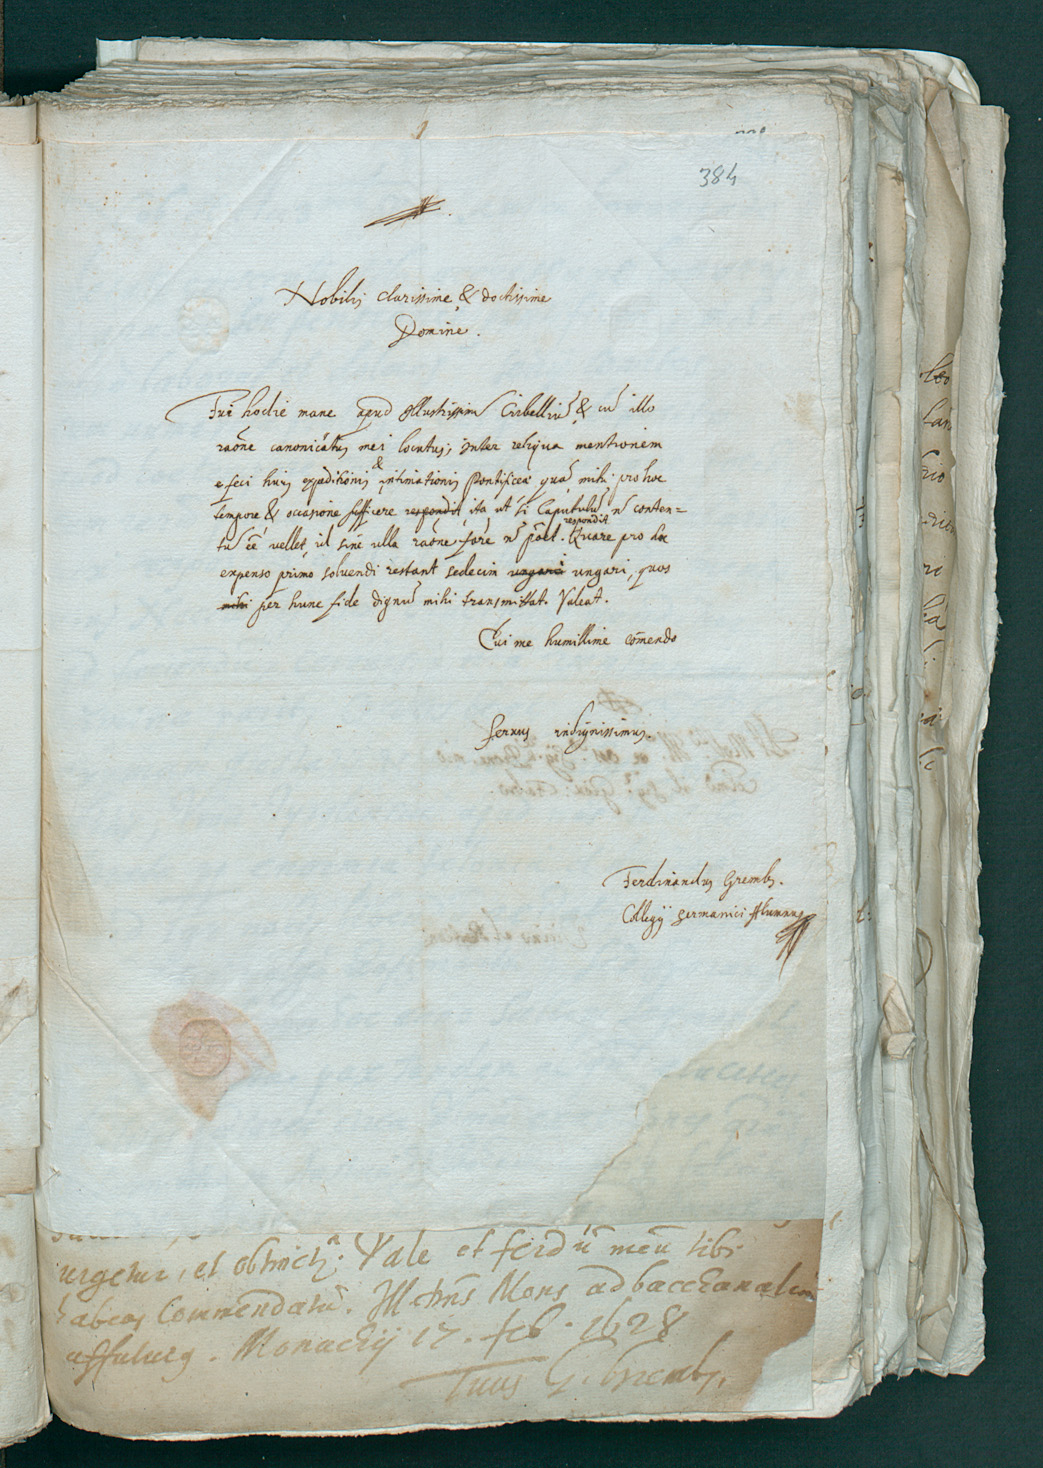 384
Nobilis clarissime & doctissime
Domine.
Fui hodie mane apud Illustrissimũ Cirbelliũ & cũ illo
raõne canonicatus mei locutus; inter reliqua mentionem
feci huius expeditionis & intimationis Pontificea quã mihi pro hoc
tempore & occasione sufficere respondit, ita ut si Capitulũ nõ conten=
tũ eẽ vellet, id sine ulla raõne fore respondit. Quare pro
expenso primo solvendi restant sedecim ungari ungari, quos
mihi per hunc fide dignũ mihi transmittat. Valeat.
Cui me humillime cõmendo
servus indignissimus.
Ferdinandus Grembs.
Collegij germanici Alumnus
urgetur, et Vale et ferdũ meũ tibi
habeas commendatũ. Mons ad bacchanalia
. Monachij 17. feb. 1628
Tuus G. Grembs.